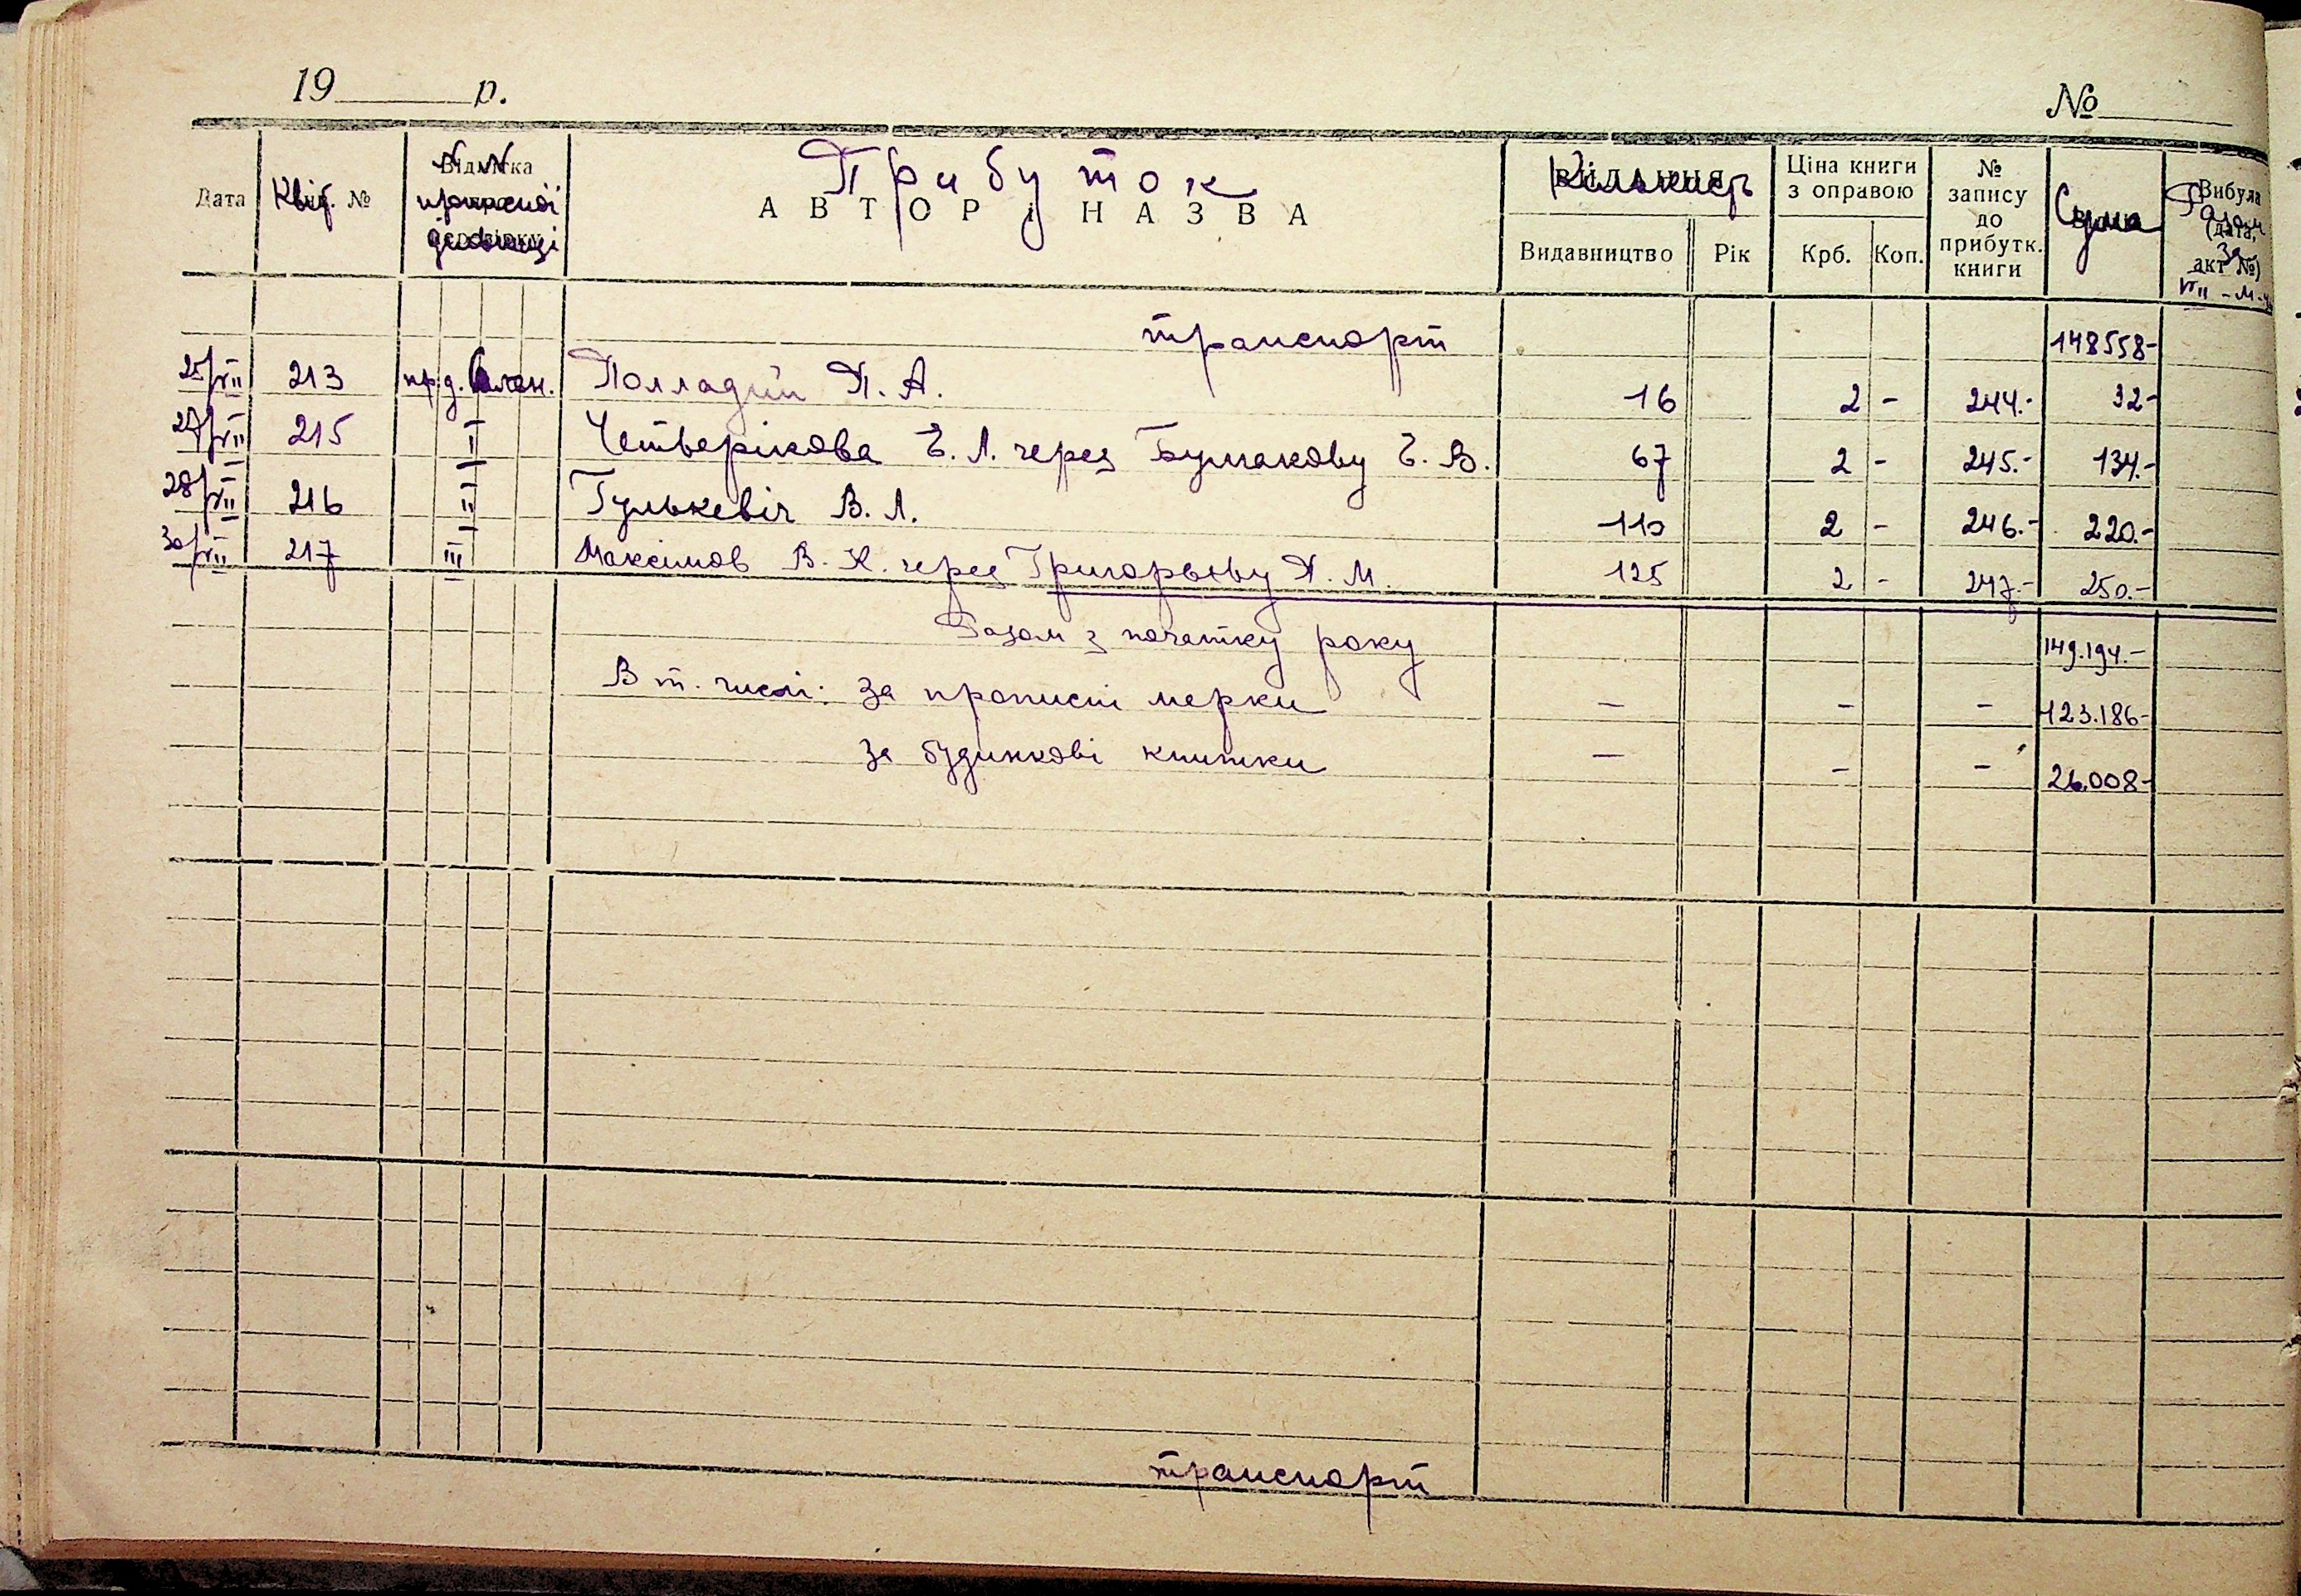 19 р.
№
Дата
Квіт. №
Відмітка
№№
прописної
дільниці
Прибуток
АВТОР І НАЗВА
Кількість
Видавництво Рік
Ціна книги
з оправою
Крб. Коп.
№
запису
до
прибутк.
книги
Сума
Вибула
Разом
(дата,
за
акт №)
VII - м-ць
транспорт 148558-
25/VII 213 пр. д. Залізн. Полладій П. А. 16 2 - 244.- 32-
27/VII 215 II Четверікова Є. Л. через Бумакову Є. В. 67 2 - 245.- 134.-
28/VII 216 II Гулькевіч В. Л. 110 2 - 246.- 220.-
30/VII 217 III Максімов В. К. через Григорьєву П. М. 125 2 - 247.- 250.-
Разом з початку року 149.194.-
В т. числі: за прописні марки - - - 123.186-
за будинкові книжки - - - 26.008-
транспорт